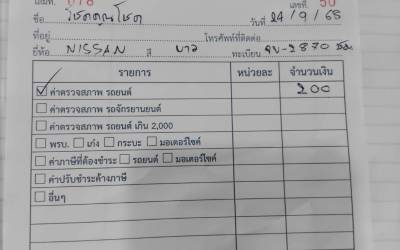 เล่มที่ 078 เลขที่ 50
ชื่อ วันที่ 24/9/65
ที่อยู่ โทรศัพท์ที่ติดต่อ
ยี่ห้อ NISSAN สี ขาว ทะเบียน 2870
รายการ หน่วยละ จำนวนเงิน
ค่าตรวจสภาพ รถยนต์ 200
ค่าตรวจสภาพ รถจักรยานยนต์
ค่าตรวจสภาพ รถยนต์ เกิน 2,000
พรบ. เก๋ง กระบะ มอเตอร์ไซค์
ค่าภาษีที่ต้องชำระ รถยนต์ มอเตอร์ไซค์
ค่าปรับชำระค้างภาษี
อื่นๆ